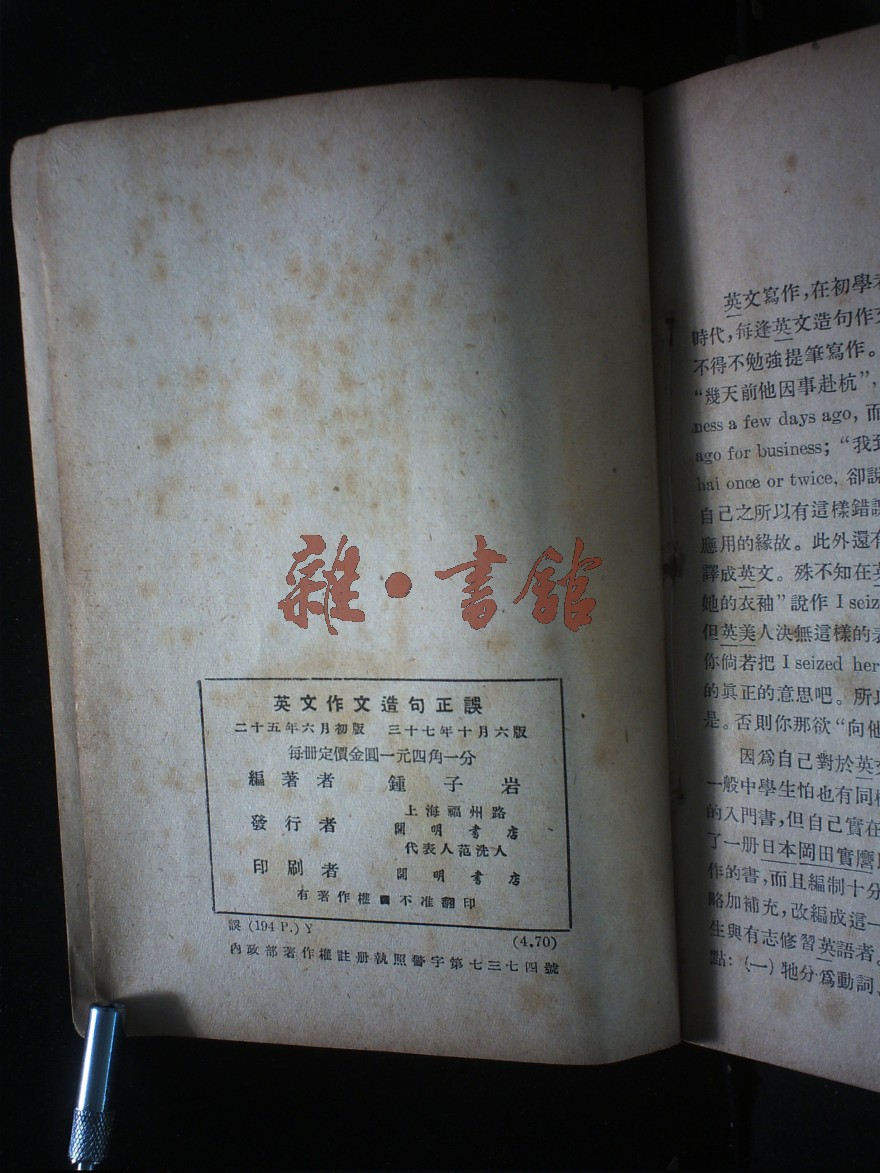 雜·書館
英文作文造句正誤
二十五年六月初版 三十七年十月六版
每册定價金圓一元四角一分
編著者 鍾子岩
發行者 上海福州路
開明書店
代表人范洗人
印刷者 開明書店
有著作權■不准翻印
誤 (194 P.) Y (4.70)
內政部著作權註册執照警字第七三七四號
英文寫作,在初學者
時代,每逢英文造句作文
不得不勉強提筆寫作。
“幾天前他因事赴杭”,
ness a few days ago, 而
ago for business; “我到
hai once or twice, 卻說
自己之所以有這樣錯誤
應用的緣故。此外還有
譯成英文。殊不知在英
她的衣袖”說作 I seiz
但英美人決無這樣的表
你倘若把 I seized her
的眞正的意思吧。所以
是。否則你那欲“向他
因爲自己對於英文
一般中學生怕也有同樣
的入門書,但自己實在
了一册日本岡田實麿
作的書,而且編制十分
略加補充,改編成這一
生與有志修習英語者。
點: (一) 牠分爲動詞、